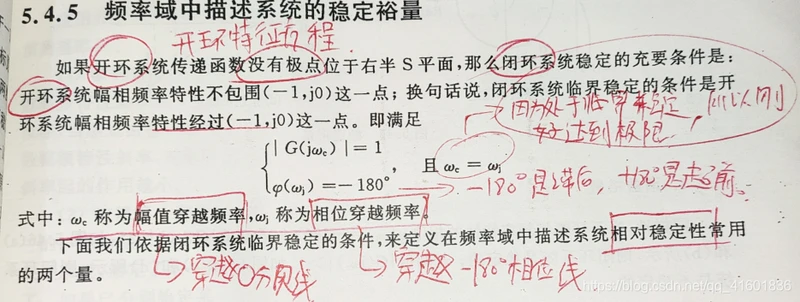 5.4.5 频率域中描述系统的稳定裕量
开环特征方程
如果开环系统传递函数没有极点位于右半 S 平面,那么闭环系统稳定的充要条件是:
开环系统幅相频率特性不包围(-1,j0)这一点;换句话说,闭环系统临界稳定的条件是开
环系统幅相频率特性经过(-1,j0)这一点。即满足
因为处于临界稳定,所以刚
好达到极限,
|G(jωc)|=1
φ(ωj)=-180°
, 且 ωc=ωj
-180°是滞后,+180°是超前。
式中:ωc 称为幅值穿越频率,ωj 称为相位穿越频率。
下面我们依据闭环系统临界稳定的条件,来定义在频率域中描述系统相对稳定性常用
的两个量。
穿越0分贝线
穿越-180°相位线
https://blog.csdn.net/qq_41601836